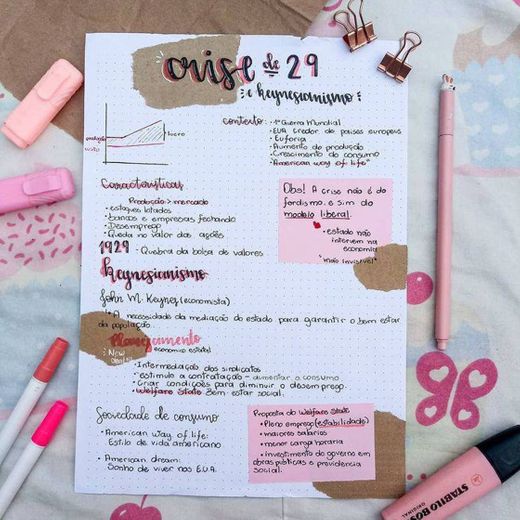 crise de 29
e keynesianismo
contexto: • 1ª Guerra Mundial
• EUA credor de países europeus
• Euforia
• Aumento da produção
• Crescimento do consumo
• "American way of life"
produção
lucro
custo
Características
Produção > mercado
• estoques lotados
• bancos e empresas fechando
• Desemprego
• Queda no valor das ações
1929 • Quebra da bolsa de valores
Obs! A crise não é do
fordismo, e sim do
modelo liberal.
• estado não
intervem na
economia
"mão invisível"
Keynesianismo
John M. Keynes (economista)
• A necessidade da mediação do estado para garantir o bem estar
da população.
Planejamento
economia estatal
: New
Deal
• Intermediação dos sindicatos
• estimulo a contratação - aumentar o consumo
• Criar condições para diminuir o desemprego.
• Welfare State Bem estar social.
Sociedade de consumo
• American way of life:
Estilo de vida americano
• American dream:
Sonho de viver nos E.U.A.
Proposta do Welfare State
• Pleno emprego (estabilidade)
• maiores salários
• menor carga horária
• investimento do governo em
obras públicas e previdência
social.
STABILO BOSS
ORIGINAL